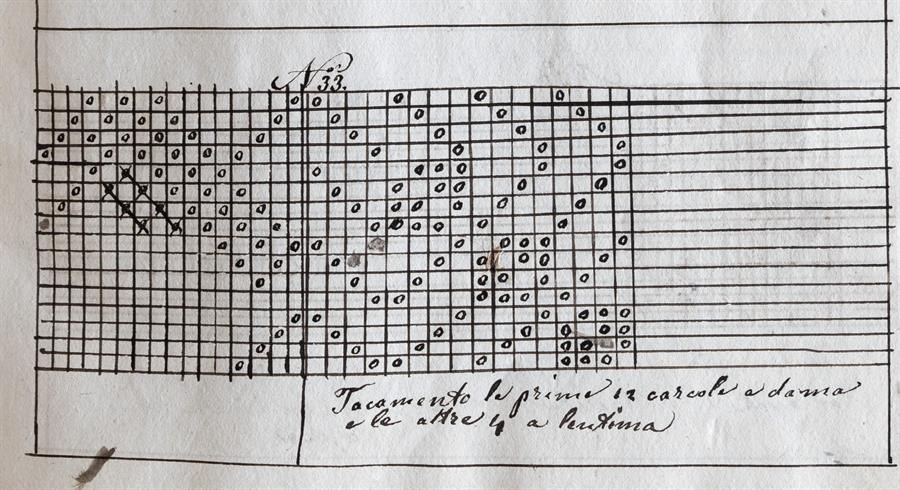 N.º 33.
Tacamento le prime 12 carcole a dama
e le altre 4 a